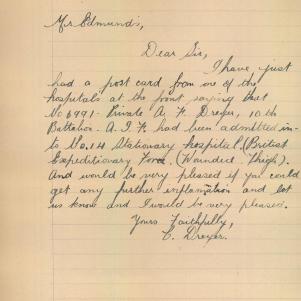 Mr Edmunds,
Dear Sir,
I have just
had a post card from one of the
hospitals at the front saying that
No 6991- Private A. F. Dreyer, 10th
Battalion. A.I.F. had been admitted in-
to No.14 Stationary hospital. (British
Expeditionary Force. (Wounded. Thigh).
And would be very pleased if you could
get any further information and let
us know and I would be very pleased.
Yours Faithfully,
C. Dreyer.